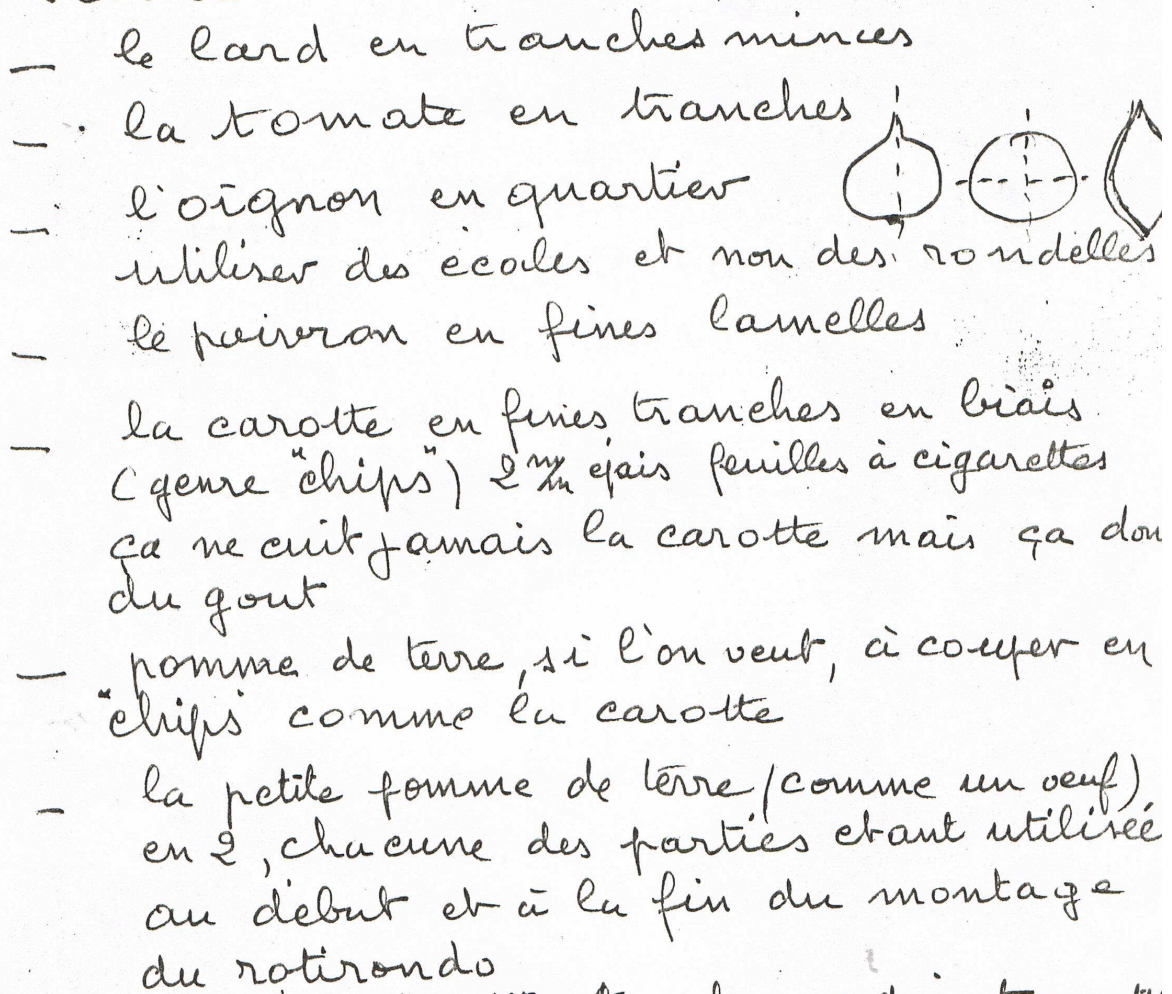 — le lard en tranches minces
— la tomate en tranches
— l'oignon en quartier
utiliser des écailes et non des rondelles
— le poivron en fines lamelles
— la carotte en fines tranches en biais
(genre "chips") 2 mm épais feuilles à cigarettes
ça ne cuit jamais la carotte mais ça don
du gout
— pomme de terre, si l'on veut, à couper en
"chips" comme la carotte
— la petite pomme de terre (comme un oeuf)
en 2, chacune des parties étant utilisée
au début et à la fin du montage
du rotirondo